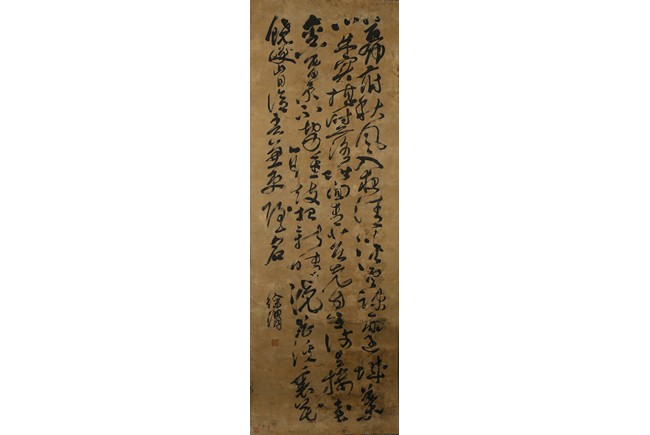 幕府秋風入夜清淡雲疎雨過城葉
心朱實時落階面青苔先自生復有樓臺
銜暮景不勞鐘鼓報新晴浣花溪裏花
饒笑肯信吾兼吏隱名
徐渭